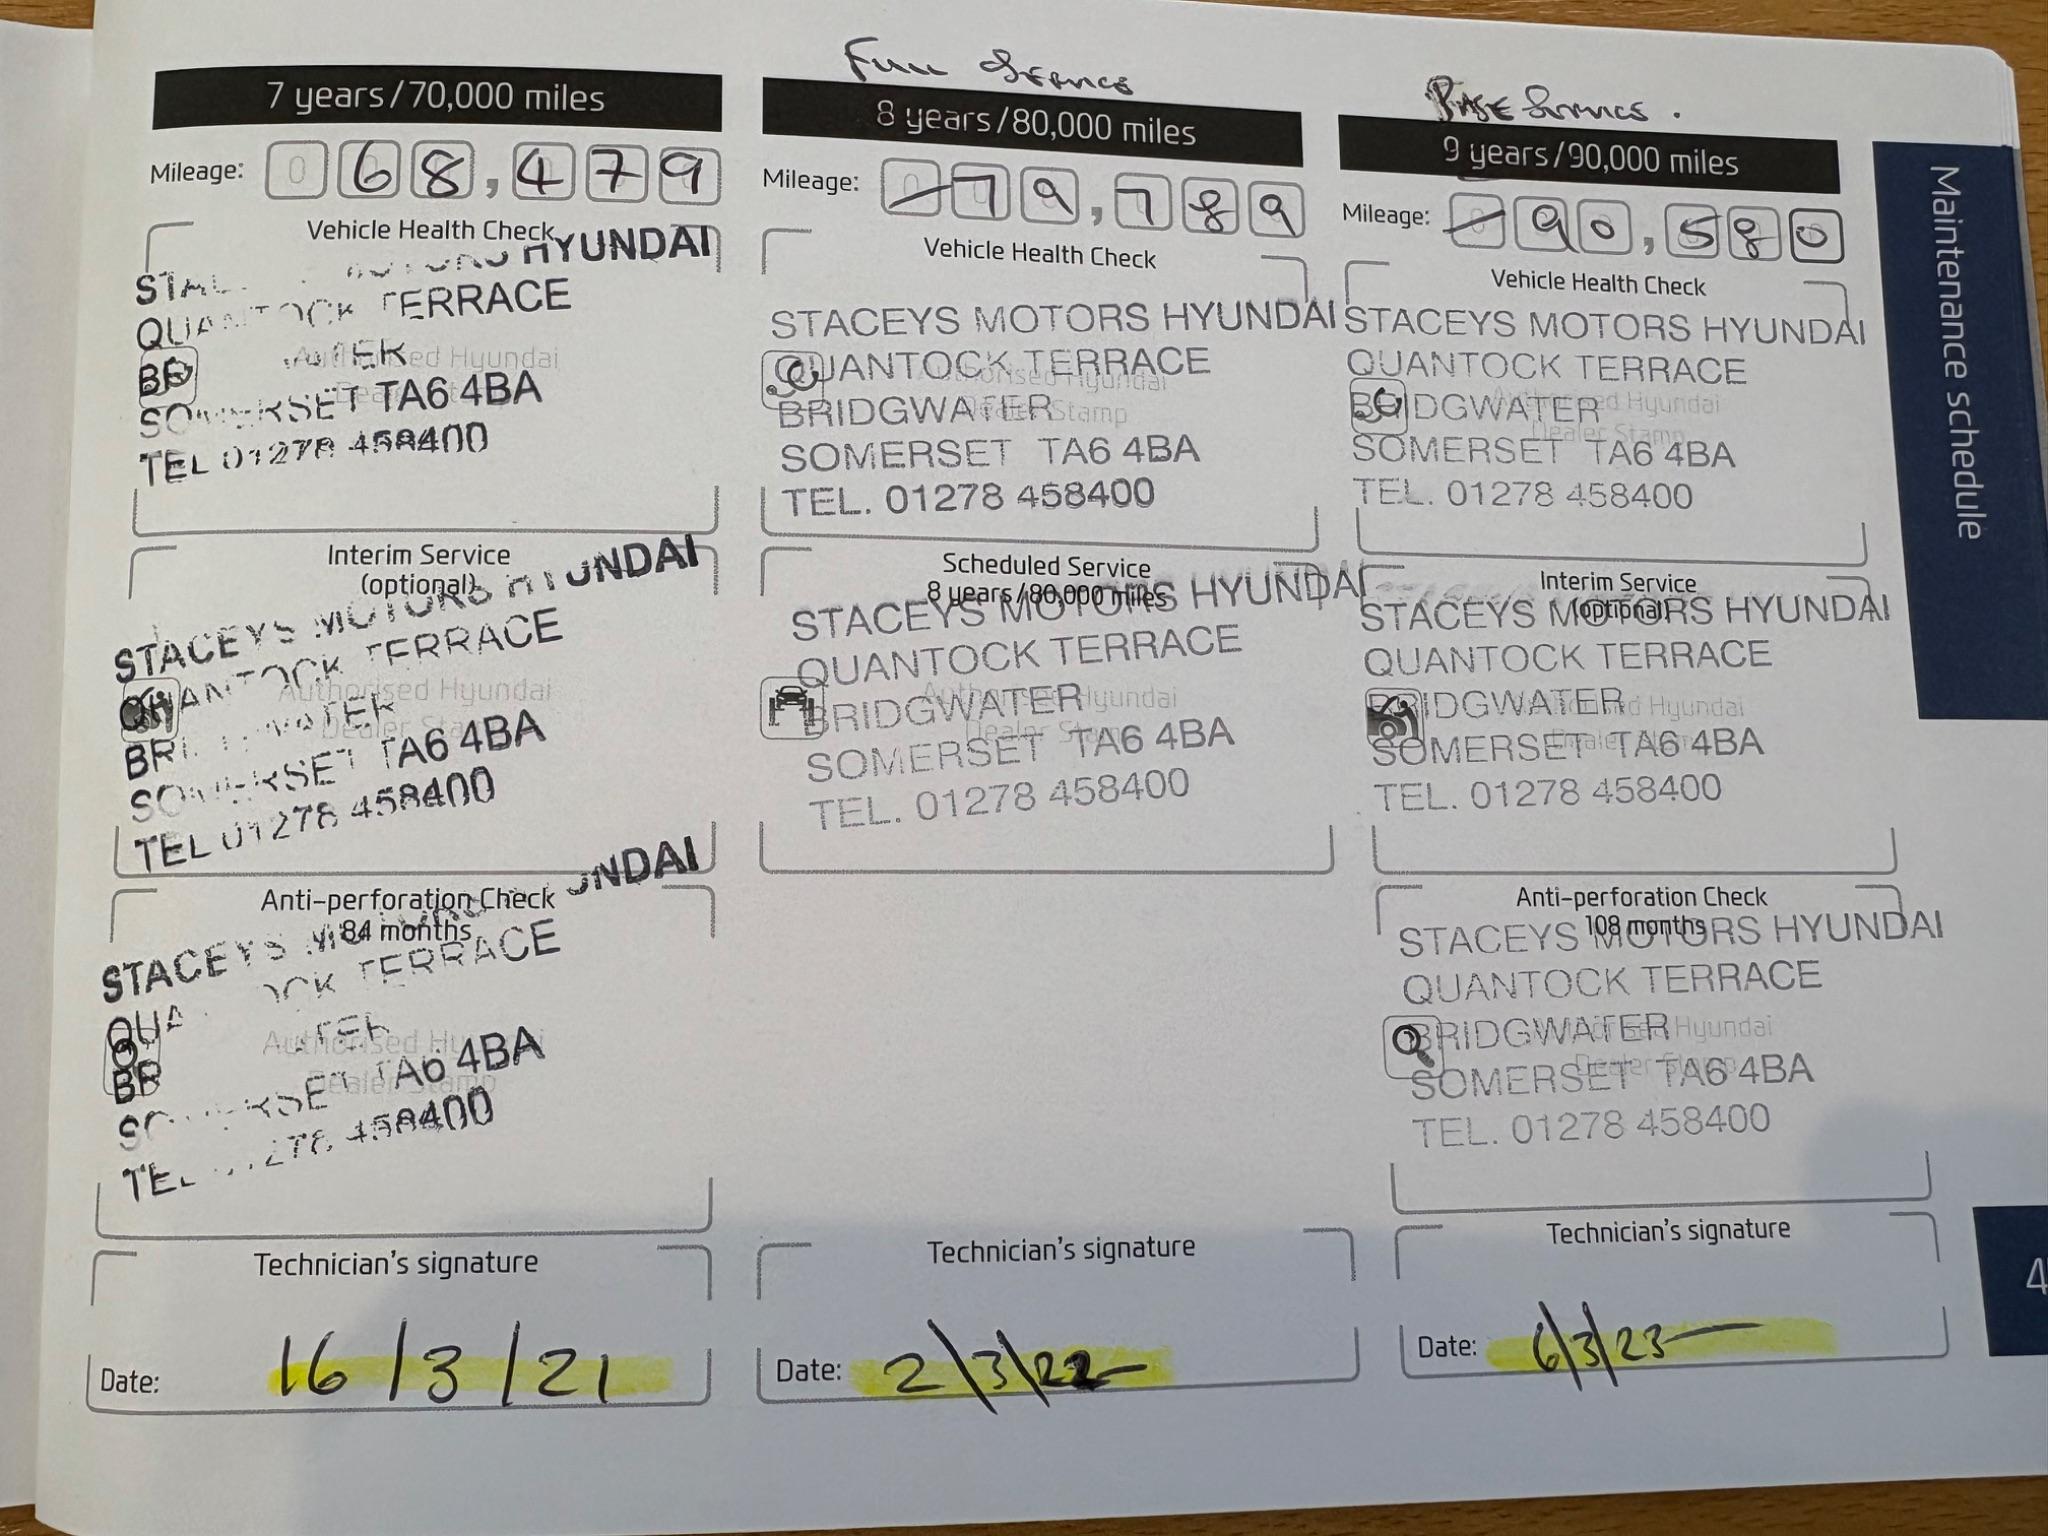 7 years/70,000 miles
Mileage: 0 68,479
Vehicle Health Check
HYUNDAI
TERRACE
Authorised Hyundai
Dealer Stamp
SOMERSET TA6 4BA
TEL 01278 458400
Interim Service
(optional)
STACEYS MOTORS HYUNDAI
QUANTOCK TERRACE
Authorised Hyundai
Dealer Stamp
SOMERSET TA6 4BA
TEL 01278 458400
Anti-perforation Check
84 months
STACEYS
TERRACE
Authorised Hyundai
Dealer Stamp
TA6 4BA
458400
Technician's signature
Date: 16/3/21
Full Service
8 years/80,000 miles
Mileage: 79,789
Vehicle Health Check
STACEYS MOTORS HYUNDAI
QUANTOCK TERRACE
Authorised Hyundai
Dealer Stamp
BRIDGWATER
SOMERSET TA6 4BA
TEL. 01278 458400
Scheduled Service
8 years/80,000 miles
STACEYS MOTORS HYUNDAI
QUANTOCK TERRACE
Authorised Hyundai
Dealer Stamp
BRIDGWATER
SOMERSET TA6 4BA
TEL. 01278 458400
Technician's signature
Date: 2/3/22
Service.
9 years/90,000 miles
Mileage: 90,580
Vehicle Health Check
STACEYS MOTORS HYUNDAI
QUANTOCK TERRACE
Authorised Hyundai
Dealer Stamp
BRIDGWATER
SOMERSET TA6 4BA
TEL. 01278 458400
Interim Service
(optional)
STACEYS MOTORS HYUNDAI
QUANTOCK TERRACE
Authorised Hyundai
Dealer Stamp
BRIDGWATER
SOMERSET TA6 4BA
TEL. 01278 458400
Anti-perforation Check
108 months
STACEYS MOTORS HYUNDAI
QUANTOCK TERRACE
Authorised Hyundai
Dealer Stamp
BRIDGWATER
SOMERSET TA6 4BA
TEL. 01278 458400
Technician's signature
Date: 6/3/23
Maintenance schedule
4